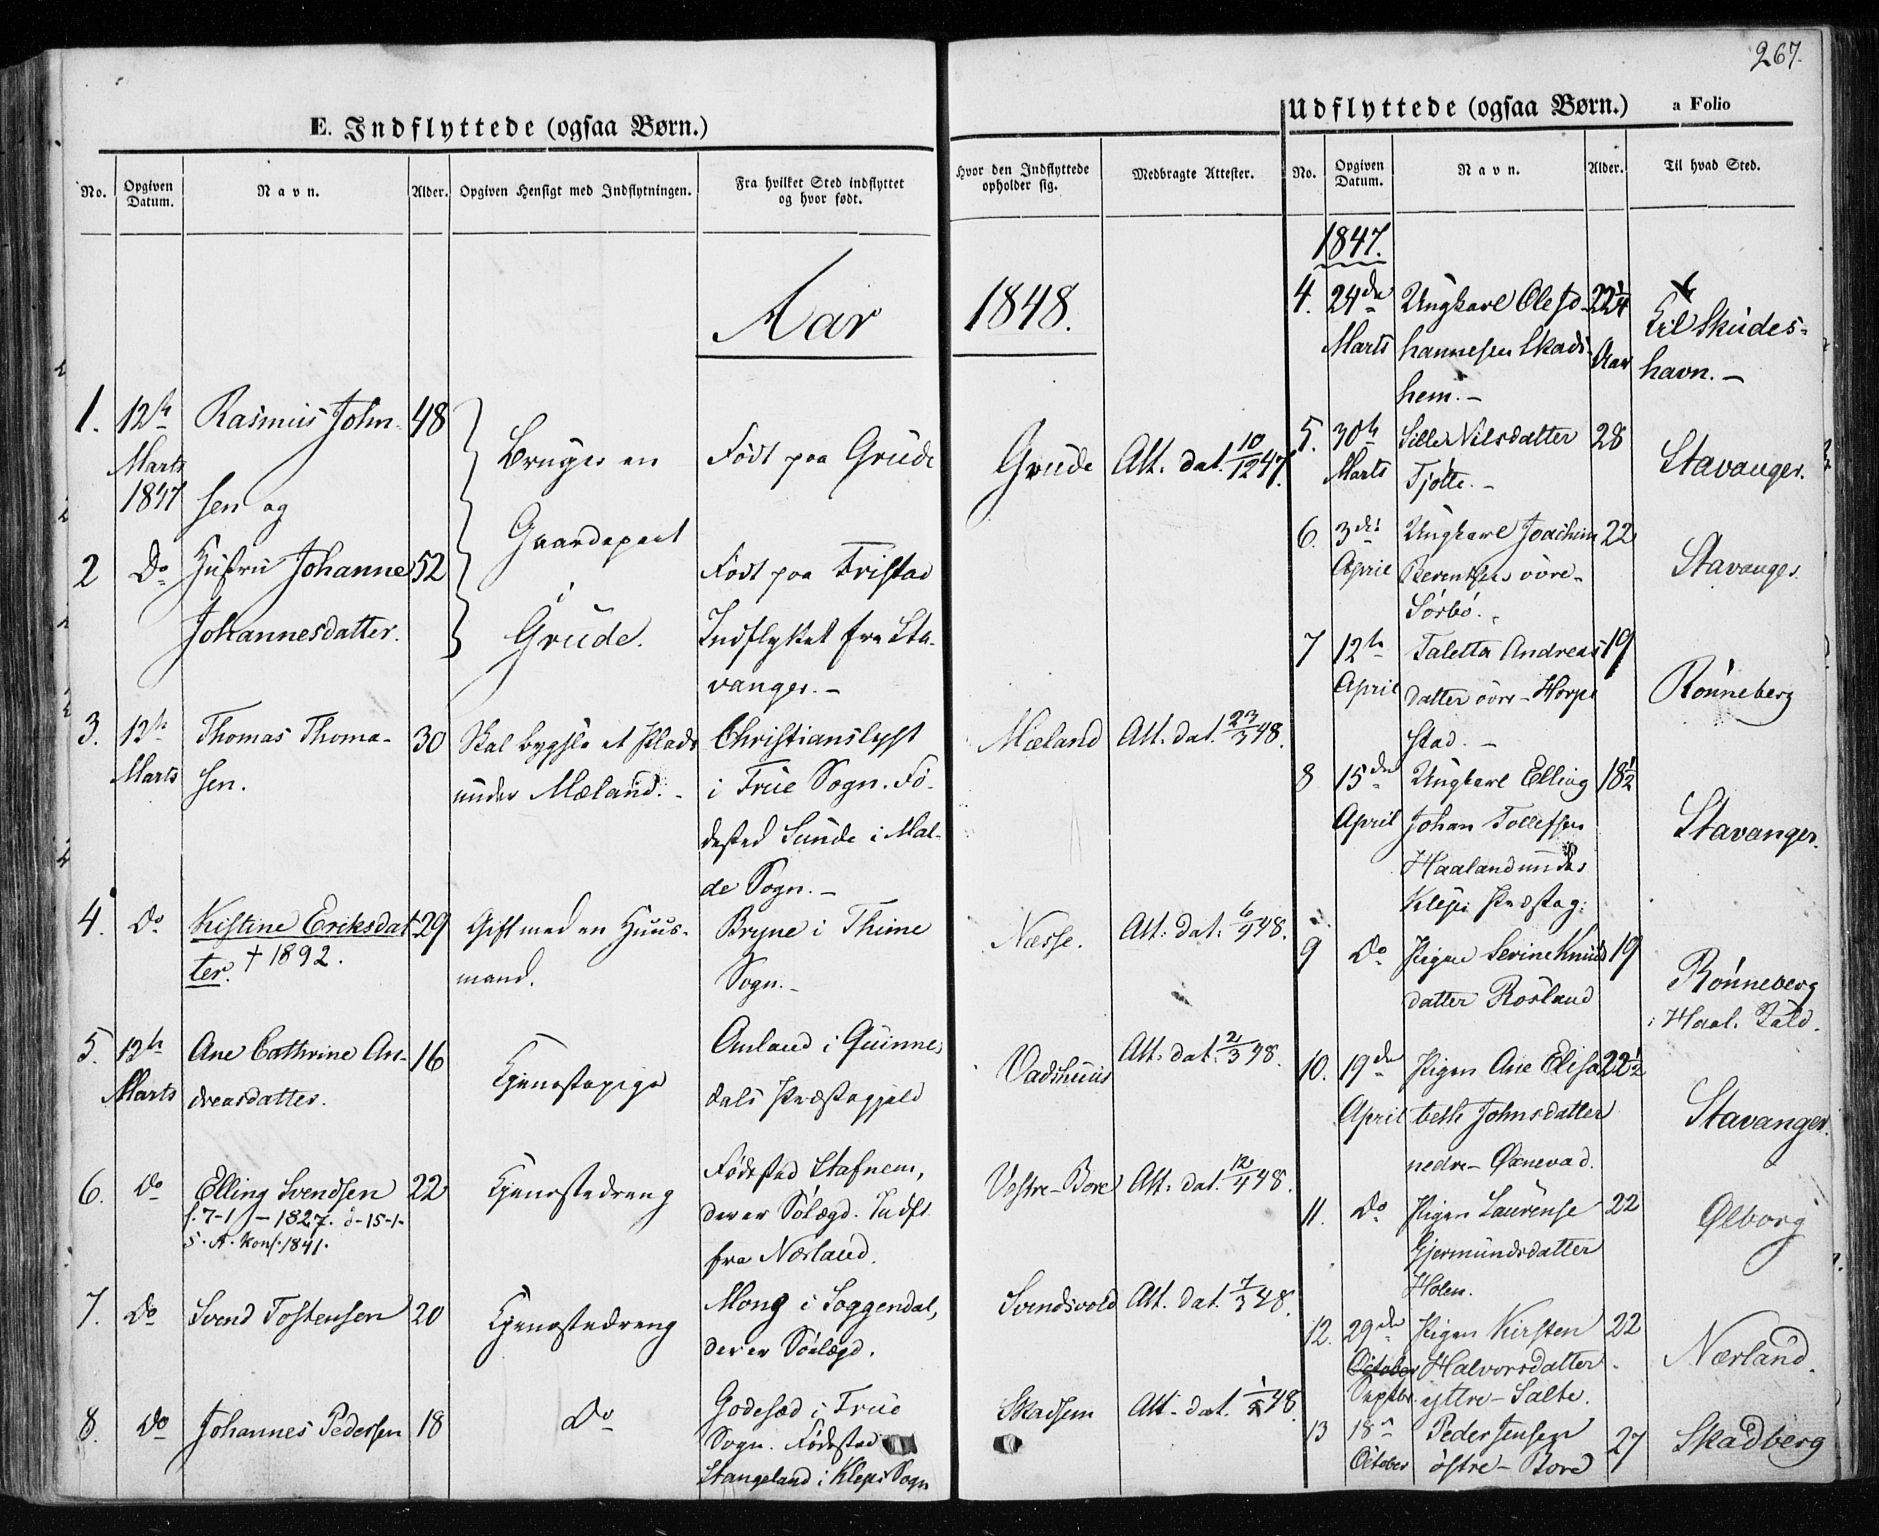 267.
E. Indflyttede (ogsaa Børn.)
No.
Opgiven Datum.
Navn.
Alder.
Opgiven Hensigt med Indflytningen.
Fra hvilket Sted indflyttet og hvor født.
Hvor den Indflyttede opholder sig.
Medbragte Attester.
Aar 1848.
1. 12te Marts 1847
Rasmus John-
sen og
48
Bruger en
Gaardepart
i
Grude.
Født paa Grude
Grude
Att. dat. 10/12 47.
2 Do Hustru Johanne
Johannesdatter.
52
Født paa Tristad
Indflyttet fra Sta-
vanger. -
3. 12te Marts
Thomas Thoma-
sen.
30
Skal bygsle et Plads
under Mæland. -
Christianslyst
i Frue Sogn. Fø-
dested Sunde i Mal-
de Sogn. -
Mæland
Att. dat. 23/3 48.
4. Do
Kistine Eriksdat
ter. † 1892.
29
Gift med en Huus-
mand.
Bryne i Thime
Sogn. -
Næsse.
Att. dat. 6/9 48.
5. 12te Marts
Ane Cathrine An-
dreasdatter.
16
Tjenestepige
Anland i Quinnes
dals Præstegjeld
Vadshuus
Att. dat. 2/3 48.
6. Do
Elling Svendsen
f. 7-1 - 1827. d-15-1-
S. A. Konf. 1841.
22
Tjenestedreng
Fødested Stafnem,
der er Sølægd. Indfl.
fra Nærland.
Vestre-Bore
Att. dat. 12/4 48.
7. Do
Svend Tostensen
20
Tjenestedreng
Mong i Soggendal,
der er Søelægd.
Svendsvold
Att. dat. 7/3 48.
8. Do
Johannes Pedersen
18
Do
Godesæd i Frue
Sogn. Fødested
Stangeland i Klep Sogn
Skadsem
Att. dat. 48.
Udflyttede (ogsaa Børn.) a Folio
No.
Opgiven Datum.
Navn.
Alder.
Til hvad Sted.
1847.
4. 24de Marts
Ungkarl Ole Jo-
hannesen Skads-
hem. -
22 1/4 Aar
til Skudes-
havn. -
5. 30te Marts
Sille Nilsdatter
Tjøtte. -
28
Stavanger.
6. 3die April
Ungkarl Joachim
Berentsen øvre-
Sørbø.
22
Stavanger.
7 12te April
Taletta Andreas
datter øvre-Horpe
stad. -
19
Rønneberg
8 15de April
Ungkarl Elling
Johan Tollefsen
Haaland under
Klepp Præsteg:
18 1/2
Stavanger.
9 Do
Pigen Serine Knuds
datter Rosland
19
Rønneberg
i Haal. Gæld.
10. 19de April
Pigen Ane Elisa
beth Johnsdatter
nedre-Øxnevad.
22 1/2
Stavanger.
11. Do
Pigen Laurense
Gjermundsdatter
Holen.
22
Ølborg
12. 29de October Septbr.
Pigen Kirsten
Halvorsdatter
ystre-Salte.
22
Nærland.
13 18de October
Peder Jensen
østre-Bore
27
Skadberg